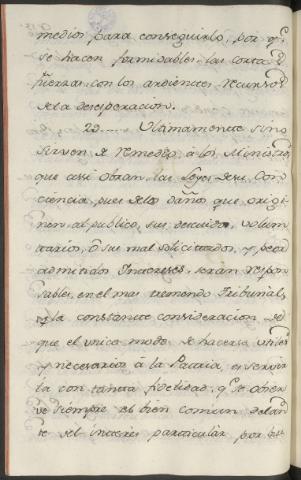 medios para conseguirlo, por qe.
se hacen formidables las cortas
fuerzas con los ardientes recursos
de la desesperacion.
29..... Ultimamente sino
sirven de remedio à los Ministros
que assi obran, las Leyes de su Con-
ciencia, pues de los daños que origi-
nen al publico, sus descuidos, volun-
tarios, ô sus mal solicitados, y peor
admitidos Intereses, serán respon-
sables, en el mas tremendo Tribunal,
y la constante consideracion de
que el unico modo, de hacerse utiles
y necesarios à la Patria, es servir
la con tanta fidelidad, qe. se obser-
ve siempre el bien comun delan-
te del interes particular, por